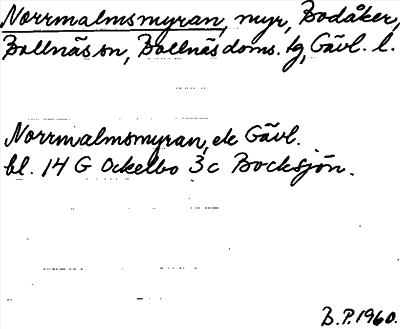 Norrmalmsmyran, myr, Bodåker,
Bollnäs sn, Bollnäs doms. tg, Gävl. l.
Norrmalmsmyran, ek Gävl.
bl. 14 G Ockelbo 3c Bocksjön.
B.P. 1960.